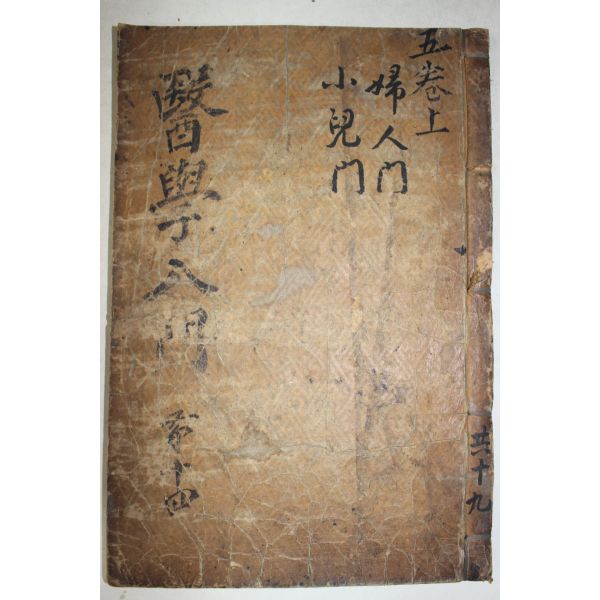 五卷上
婦人門
小兒門
醫學入門 第十四
共十九